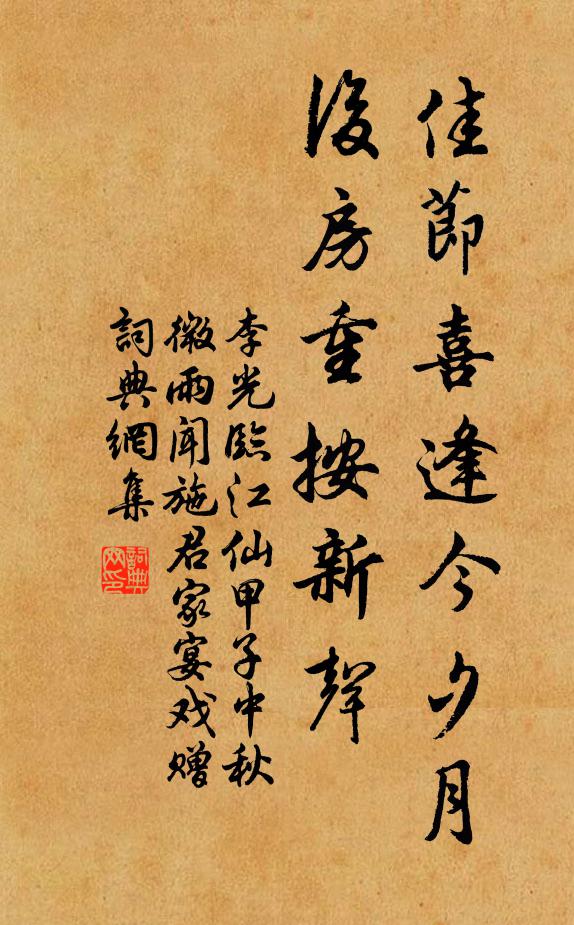 佳節喜逢今夕月
後房重按新聲
李光臨江仙甲子中秋
微雨聞施君家宴戏赠
詞典網集
詞典网印